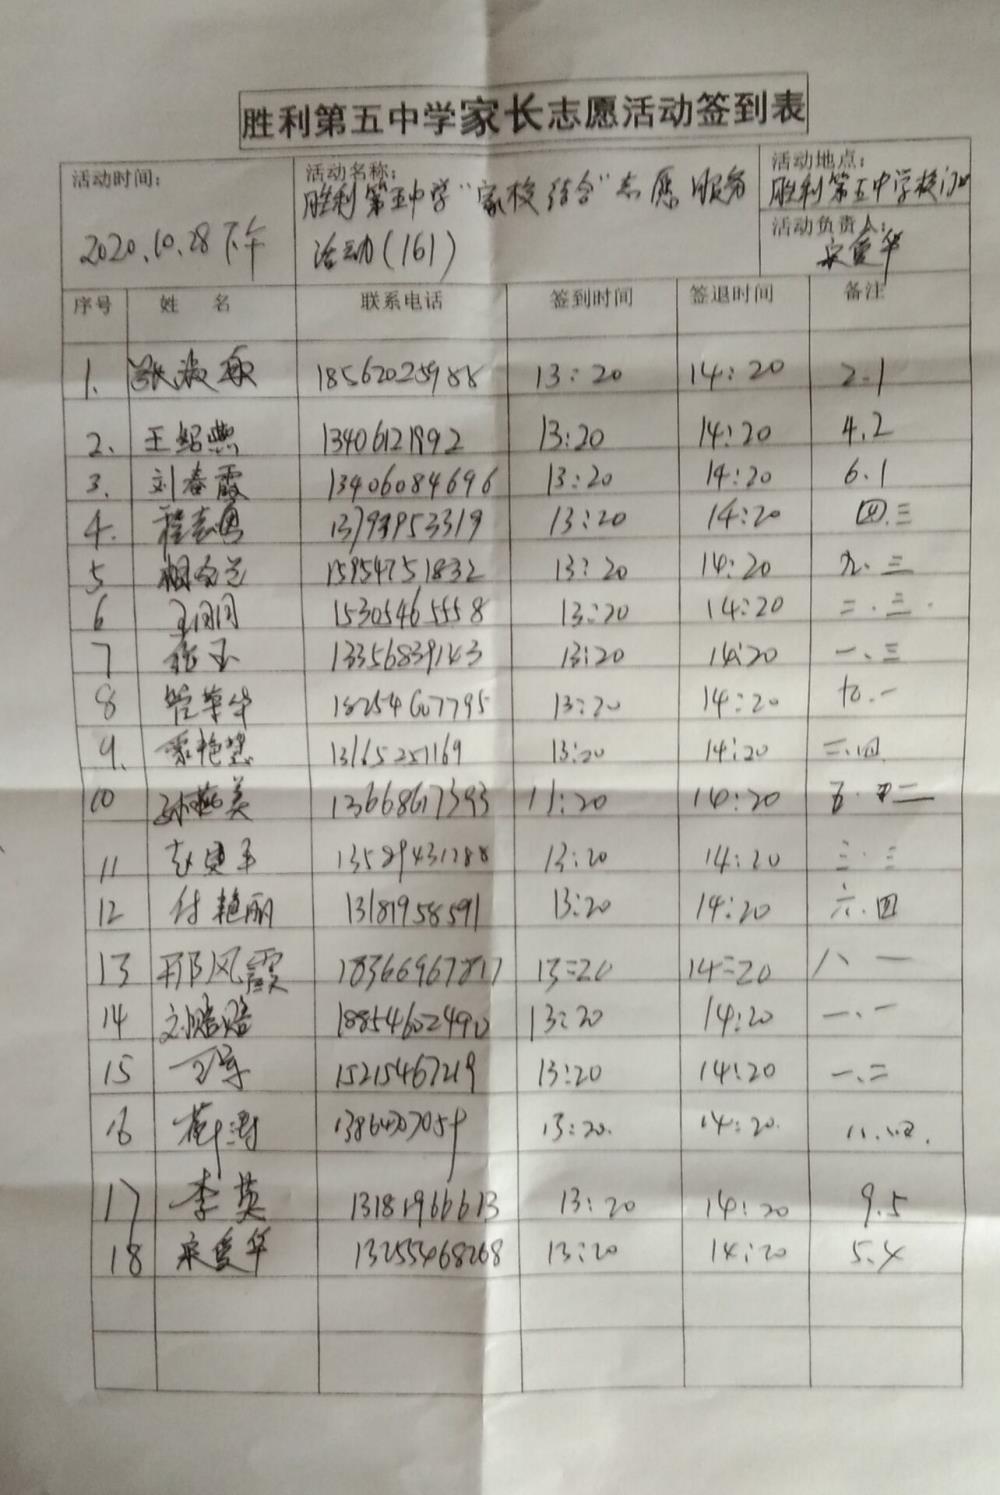 胜利第五中学家长志愿活动签到表
活动时间: 2020.10.28下午
活动名称: 胜利第五中学"家校结合"志愿服务
活动(161)
活动地点: 胜利第五中学校门口
活动负责人: 宋爱华
序号 姓 名 联系电话 签到时间 签退时间 备注
1. 张淑敏 18562025988 13:20 14:20 2.1
2. 王绍燕 13406121992 13:20 14:20 4.2
3. 刘春霞 13406084696 13:20 14:20 6.1
4. 程志勇 13:20 14:20 四.三
5 15954751832 13:20 14:20 九.三
6 王闰闰 15305465558 13:20 14:20 二.三.
7 张玉 13356839143 13:20 14:20 一、三
8 管华华 18254607795 13:20 14:20 十.一
9. 13165251169 13:20 14:20 三.四
10 孙燕美 13668617393 13:20 14:20 五.二
11 13589431288 13:20 14:20 三.三
12 付艳丽 13181958591 13:20 14:20 六.四
13 邢风霞 18366967817 13:20 14:20 八 一
14 刘赔赔 18854602490 13:20 14:20 一.一
15 15215467219 13:20 14:20 一.二
16 13:20. 14:20. 八.四.
17 李英 13181966613 13:20 14:20 9.5
18 宋爱华 13255468268 13:20 14:20 5.4